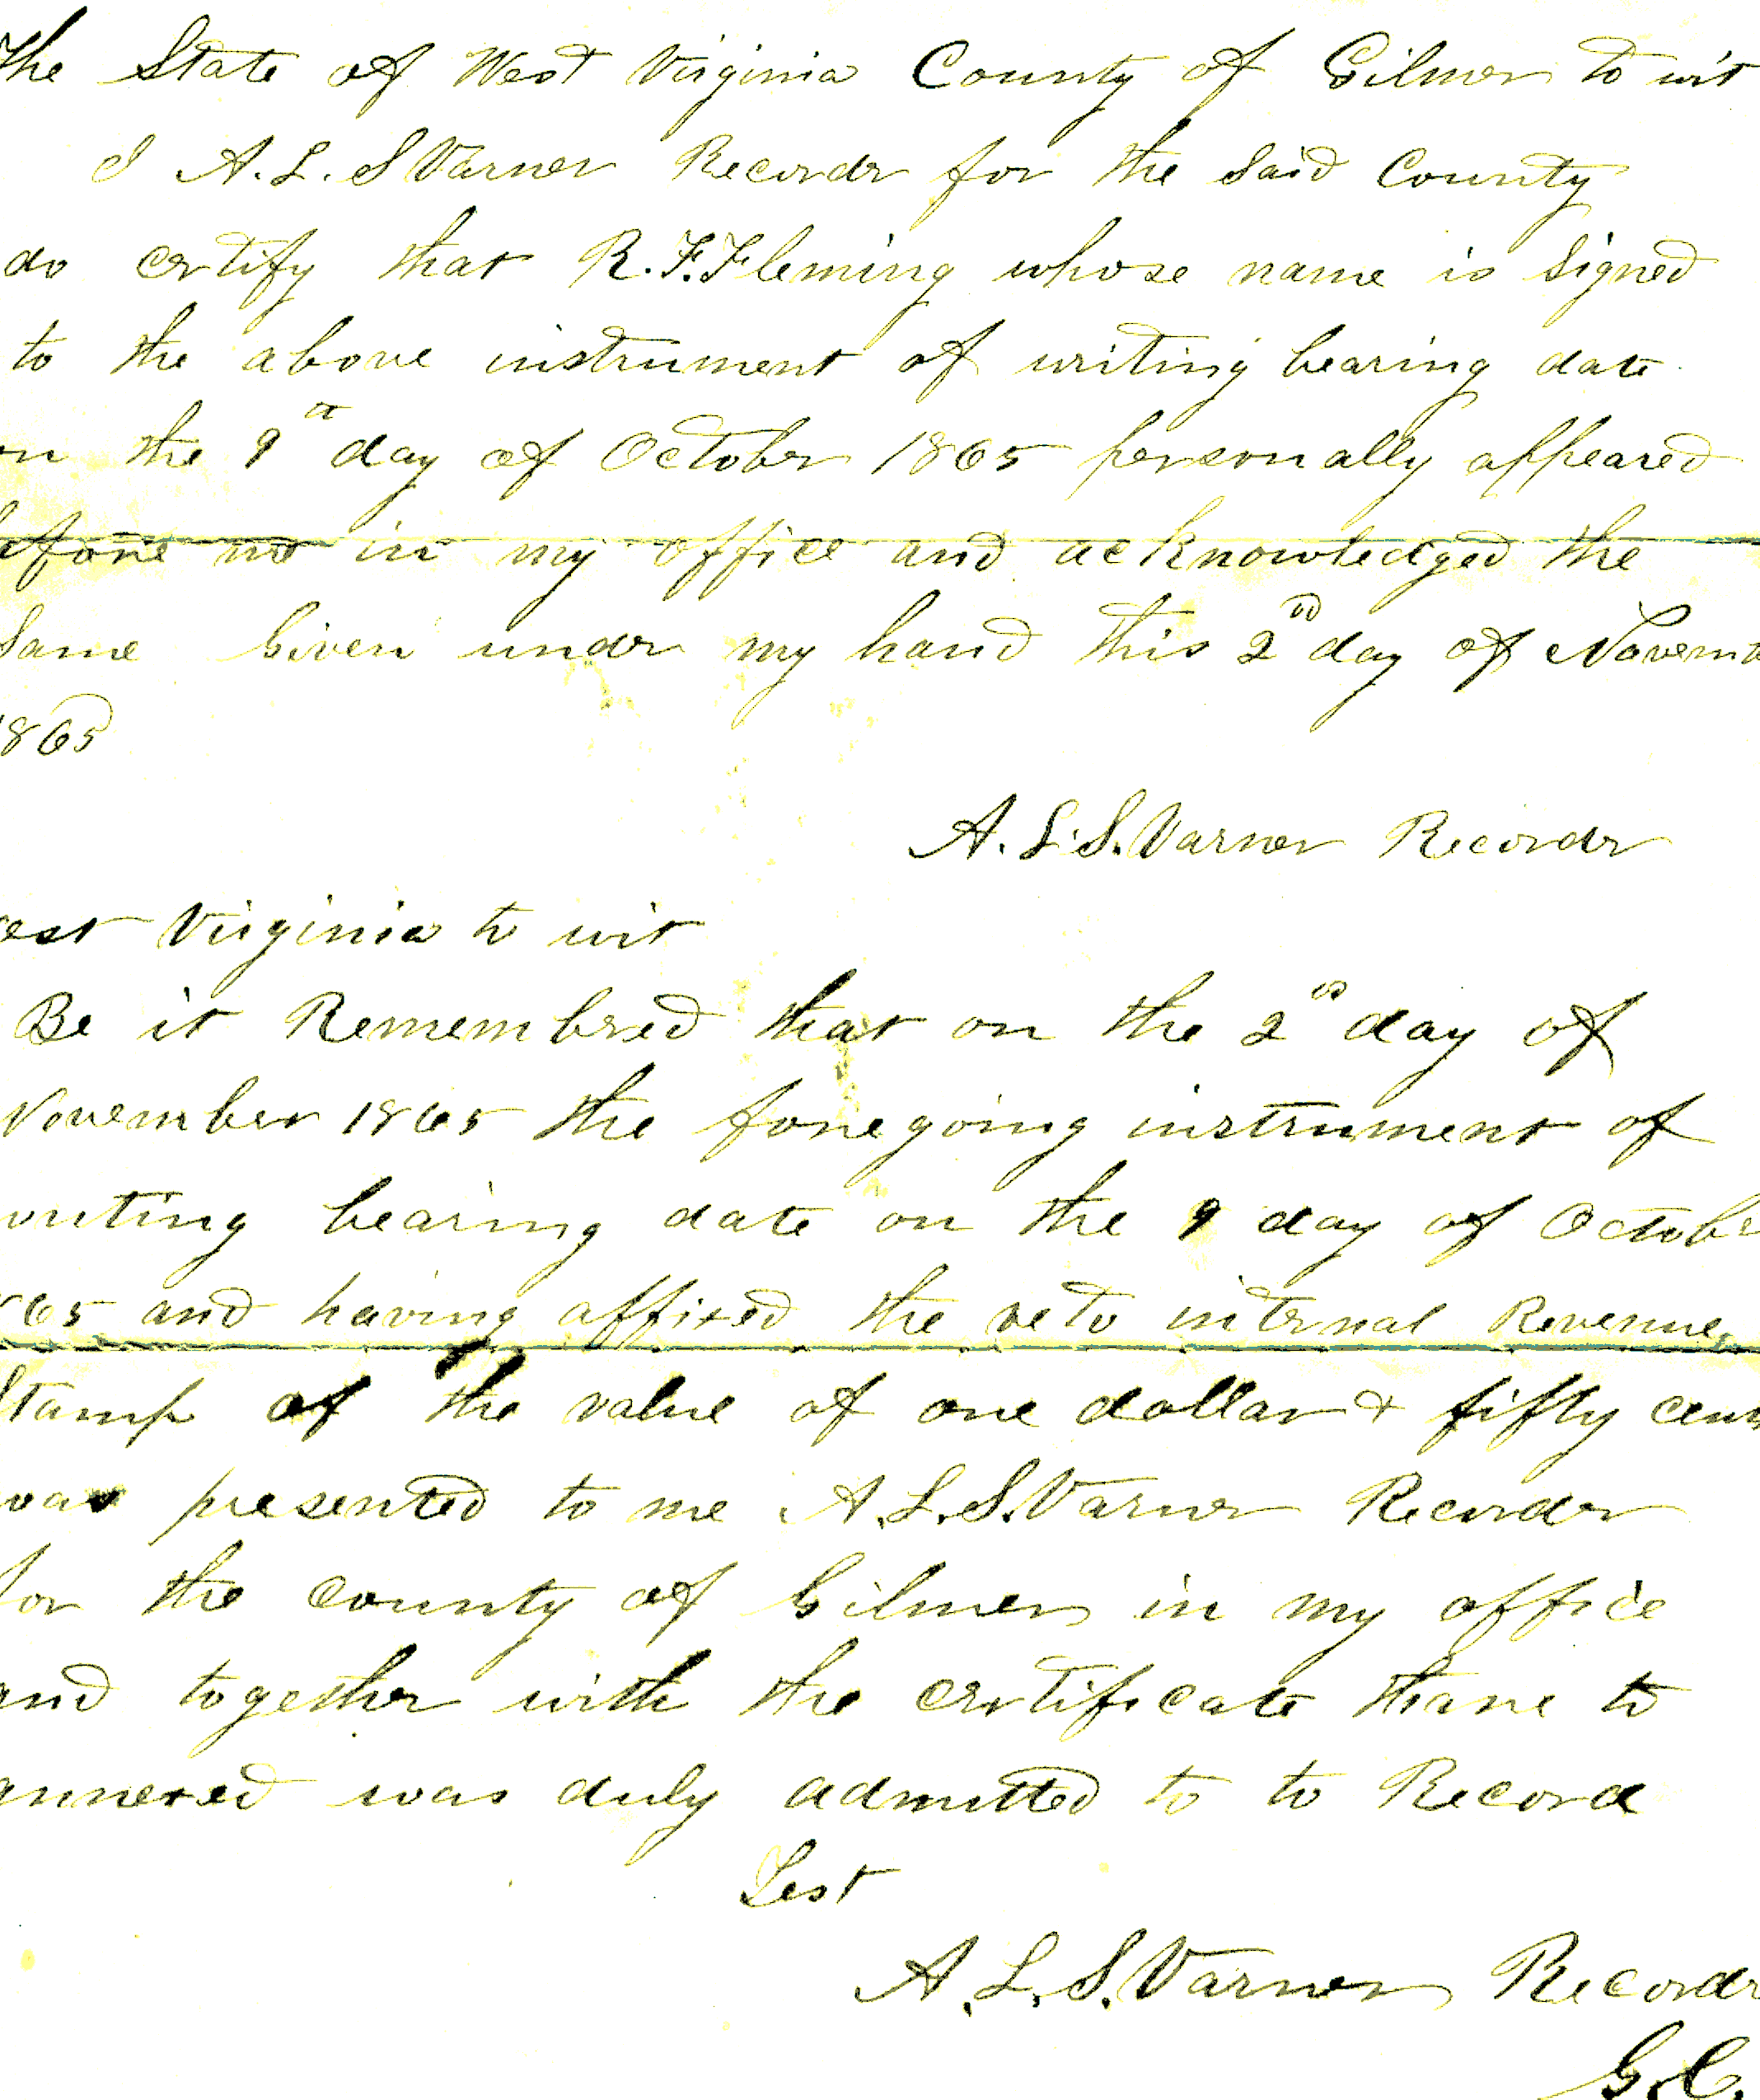 The State of West Virginia County of Gilmer to wit
I A. L. S Varner Recordr for the said County
do certify that R. F. Fleming whose name is signed
to the above instrument of writing bearing date
on the 9th day of October 1865 personally appeared
before me in my office and acknowledged the
same Given under my hand this 2nd day of Novem
1865
A. L. S. Varner Recordr
est Virginia to wit
Be it Remembred that on the 2nd day of
November 1865 the foregoing instrument of
writing bearing date on the 9 day of Octob
1865 and having affixed the re to internal Revenue
Stamp of the value of one dollar & fifty cents
was presented to me A. L. S. Varner Recorder
for the county of Gilmer in my office
and together with the certificate thare to
annexed was duly admitted to to Record
Test
A. L. S. Varner Recordr
G. C.